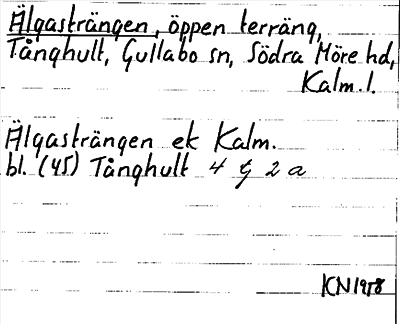 Älgasträngen, öppen terräng,
Tånghult, Gullabo sn, Södra Möre hd,
Kalm. l.
Älgasträngen ek Kalm.
bl. (45) Tånghult 4 G 2 a
KN 1958